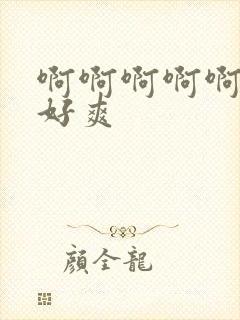 啊啊啊啊啊
好爽
顔全龍